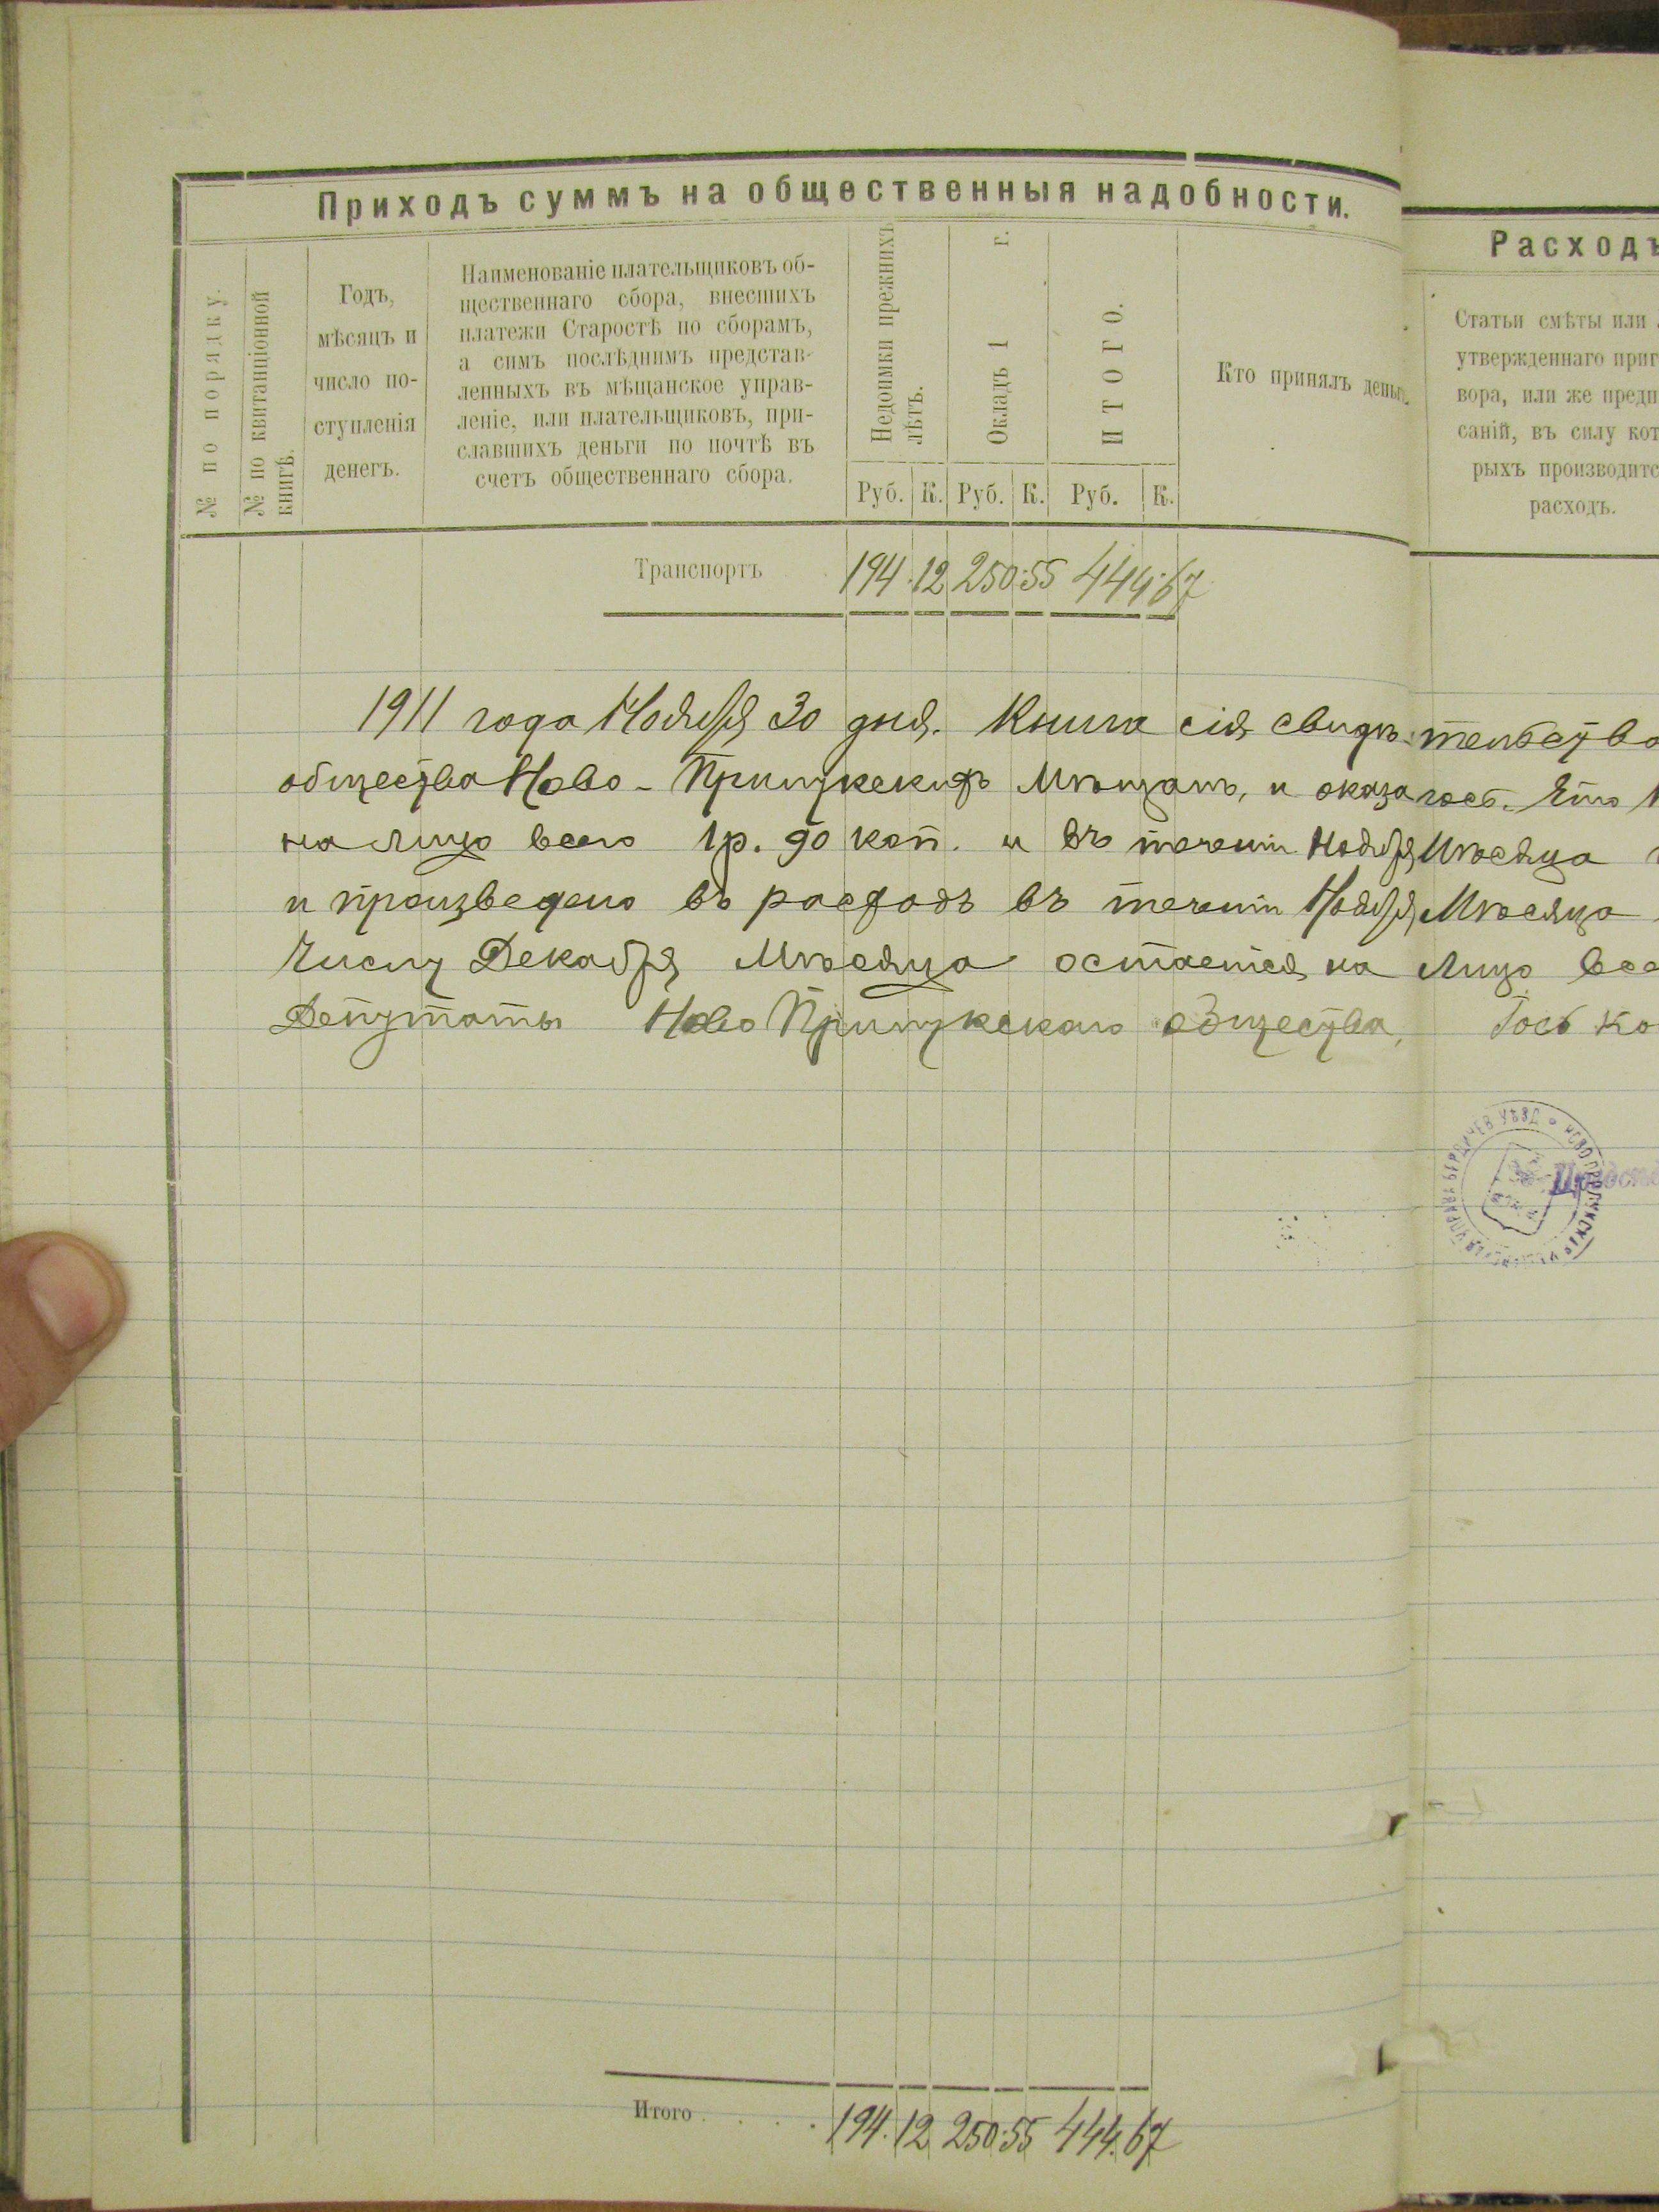 Приходъ суммъ на общественныя надобности.
№ по порядку.
№ по квитанціонной
книгѣ.
Годъ,
мѣсяцъ и
число по-
ступленія
денегъ.
Наименованіе плательщиковъ об-
щественнаго сбора, внесшихъ
платежи Старостѣ по сборамъ,
а симъ послѣднимъ представ-
ленныхъ въ мѣщанское управ-
леніе, или плательщиковъ, при-
славшихъ деньги по почтѣ въ
счетъ общественнаго сбора.
Недоимки прежнихъ
лѣтъ.
Окладъ 1 г.
ИТОГО.
Руб. К. Руб. К. Руб. К.
Кто принялъ деньги.
Транспортъ 194.12 250.55 444.67
1911 года Ноября 30 дня. Книга сія свидѣтельство
общества Ново-Прилукскихъ Мѣщанъ, и оказалось. Что
на лицо всего 1р. 90 коп. и въ теченіи Ноября Мѣсяца
и произведено въ расходъ въ теченіи Ноября Мѣсяца
Числу Декабря Мѣсяца остается на Лицо все
Депутаты Ново Прилукскаго общества, Гось Ко
Итого . . . . 194.12 250.55 444.67
Расходъ
Статьи смѣты или
утвержденнаго приг
вора, или же предп
саній, въ силу кот
рыхъ производитс
расходъ.